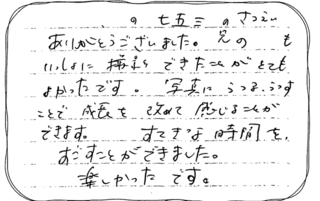 の 七五三 のさつえい
ありがとうございました。兄の も
いっしょに できたことが とても
よかったです。 写真に うつる、うつす
ことで 成長を 改めて 感じることが
できます。 すてきな 時間を、
すごすことができました。
楽しかった です。